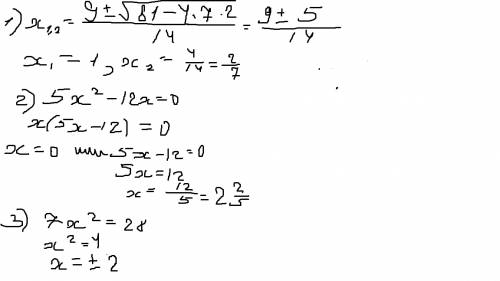 1) x₁,₂ = (9 ± √(81 − 4·7·2))/14 = (9 ± 5)/14
x₁ = 1, x₂ = 4/14 = 2/7
2) 5x² − 12x = 0
x(5x − 12) = 0
x = 0 или 5x − 12 = 0
5x = 12
x = 12/5 = 2 2/5
3) 7x² = 28
x² = 4
x = ± 2